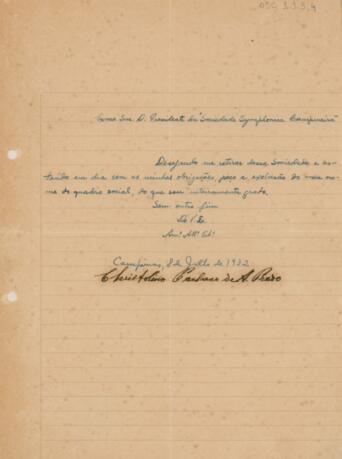 Exmo Snr. D. Presidente da "Sociedade Symphonica Campineira"
Desejando me retirar dessa Sociedade e es-
tando em dia com as minhas obrigações, peço a exclusão do meu no-
me do quadro social, do que sou inteiramente grato.
Sem outro fim
Campinas, 8 de Julho de 1932
Christolino Pacheco de A. Prado